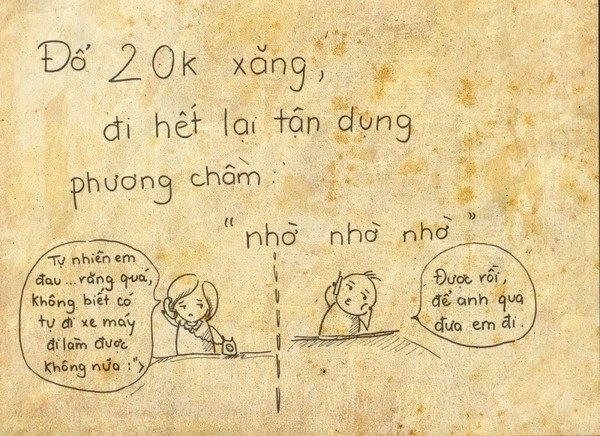 Đổ 20k xăng,
đi hết lại tận dụng
phương châm:
"nhờ nhờ nhờ"
Tự nhiên em
đau...răng quá,
không biết có
tự đi xe máy
đi làm được
không nữa :">
Được rồi,
để anh qua
đưa em đi.